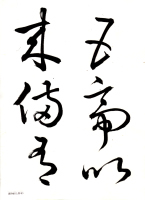 五帝以
来備有